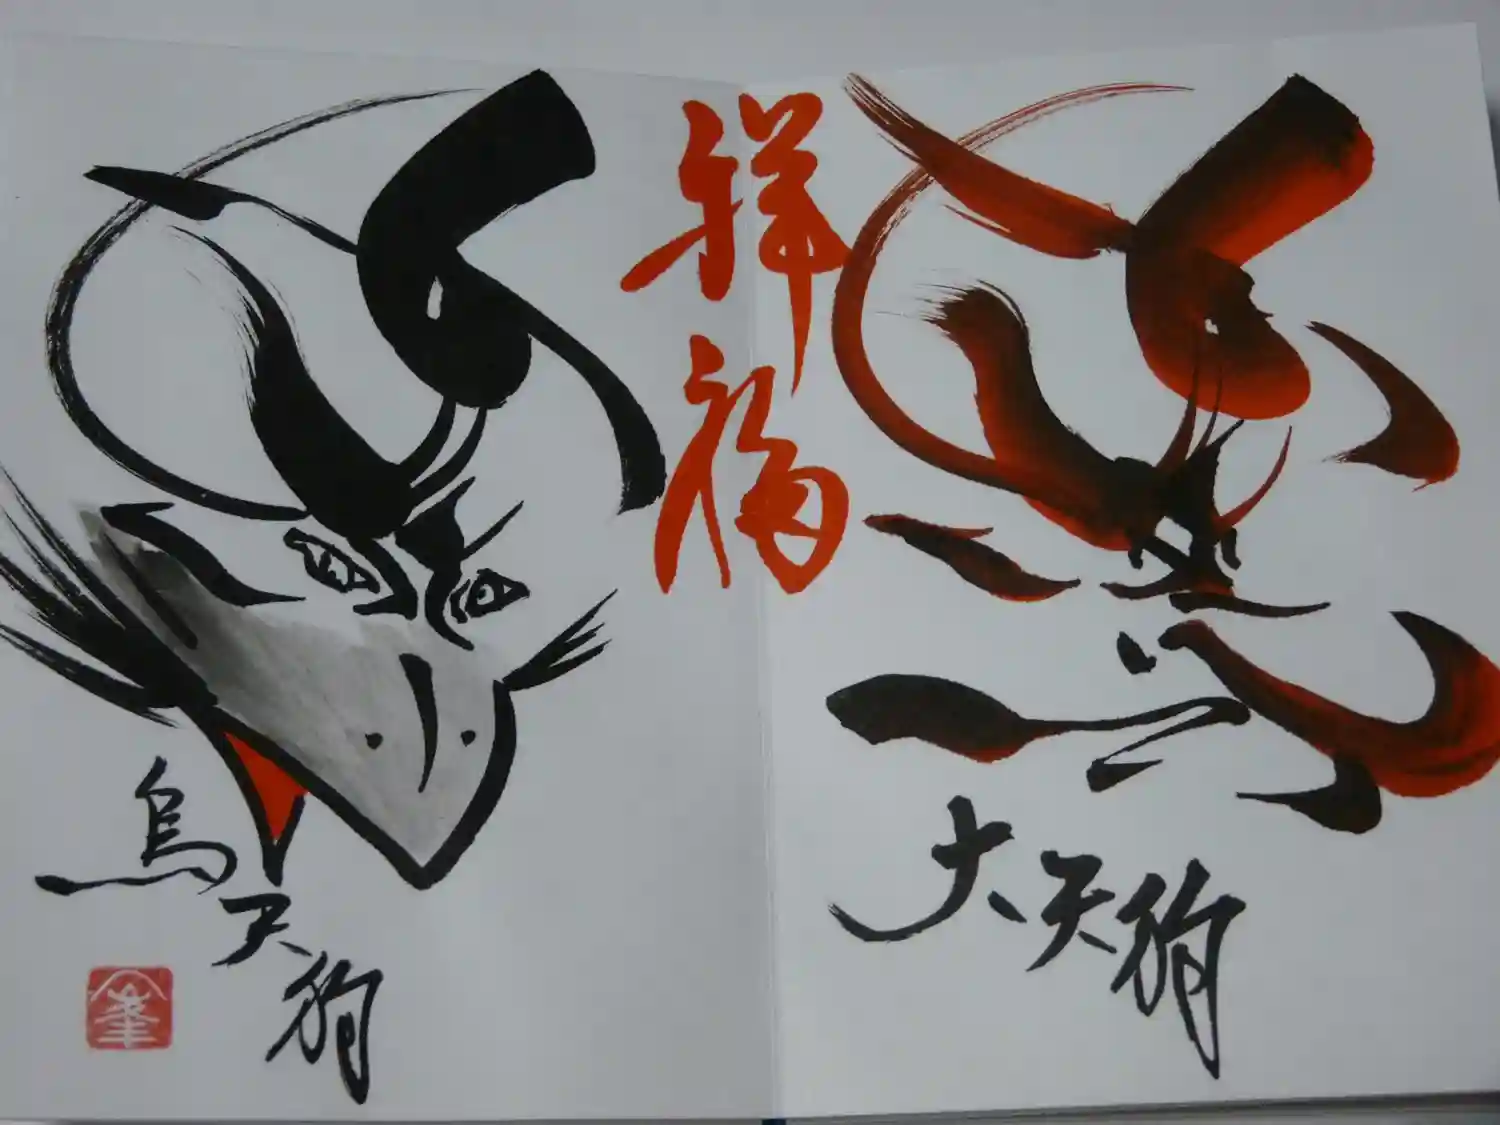 祥福
大天狗
烏天狗